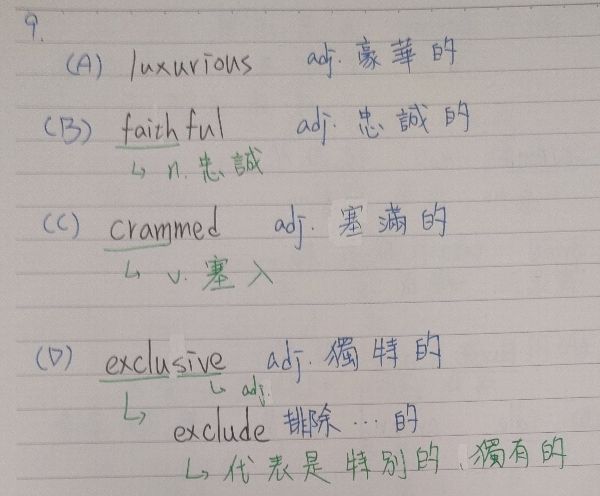 9.
(A) luxurious adj. 豪華的
(B) faithful adj. 忠誠的
↳ n. 忠誠
(C) crammed adj. 塞滿的
↳ v. 塞入
(D) exclusive adj. 獨特的
↳ adj.
↳ exclude 排除…的
↳ 代表是特別的、獨有的